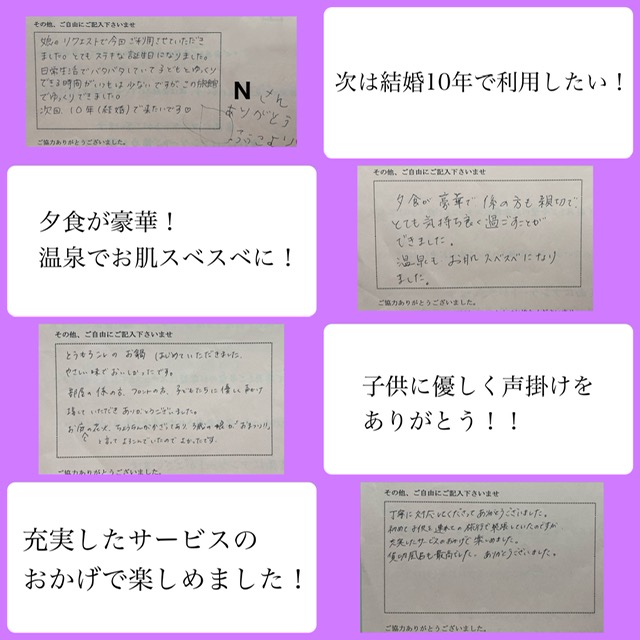 その他、ご自由にご記入下さいませ
娘のリクエストで今回ご利用させていただき
ました。とてもステキな誕生日になりました。
日常生活でバタバタしていて子どもとゆっくり
できる時間がいつもは少ないですが、この旅館
でゆっくりできました。
次回、10年(結婚)で来たいです♡
N さん
ありがとう
より
ご協力ありがとうございました。
次は結婚10年で利用したい！
夕食が豪華！
温泉でお肌スベスベに！
その他、ご自由にご記入下さいませ
夕食が豪華で係の方も親切で、
とても気持ち良く過ごすことが
できました。
温泉もお肌スベスベになり
ました。
ご協力ありがとうございました。
その他、ご自由にご記入下さいませ
とうもろこしのお鍋はじめていただきました。
やさしい味でおいしかったです。
部屋の係の方、フロントの方、子どもたちに優しく声かけ
していただきありがとうございました。
お庭の花火、ちょうちんがかざってあり、3歳の娘が"おまつり!!"
と言ってよろこんでいたのでよかったです。
ご協力ありがとうございました。
子供に優しく声掛けを
ありがとう！！
充実したサービスの
おかげで楽しめました！
その他、ご自由にご記入下さいませ
丁寧に対応してくださってありがとうございました。
初めて子供を連れての旅行で緊張していたのですが
充実したサービスのおかげで楽しめました。
貸切風呂も最高でした。ありがとうございました。
ご協力ありがとうございました。